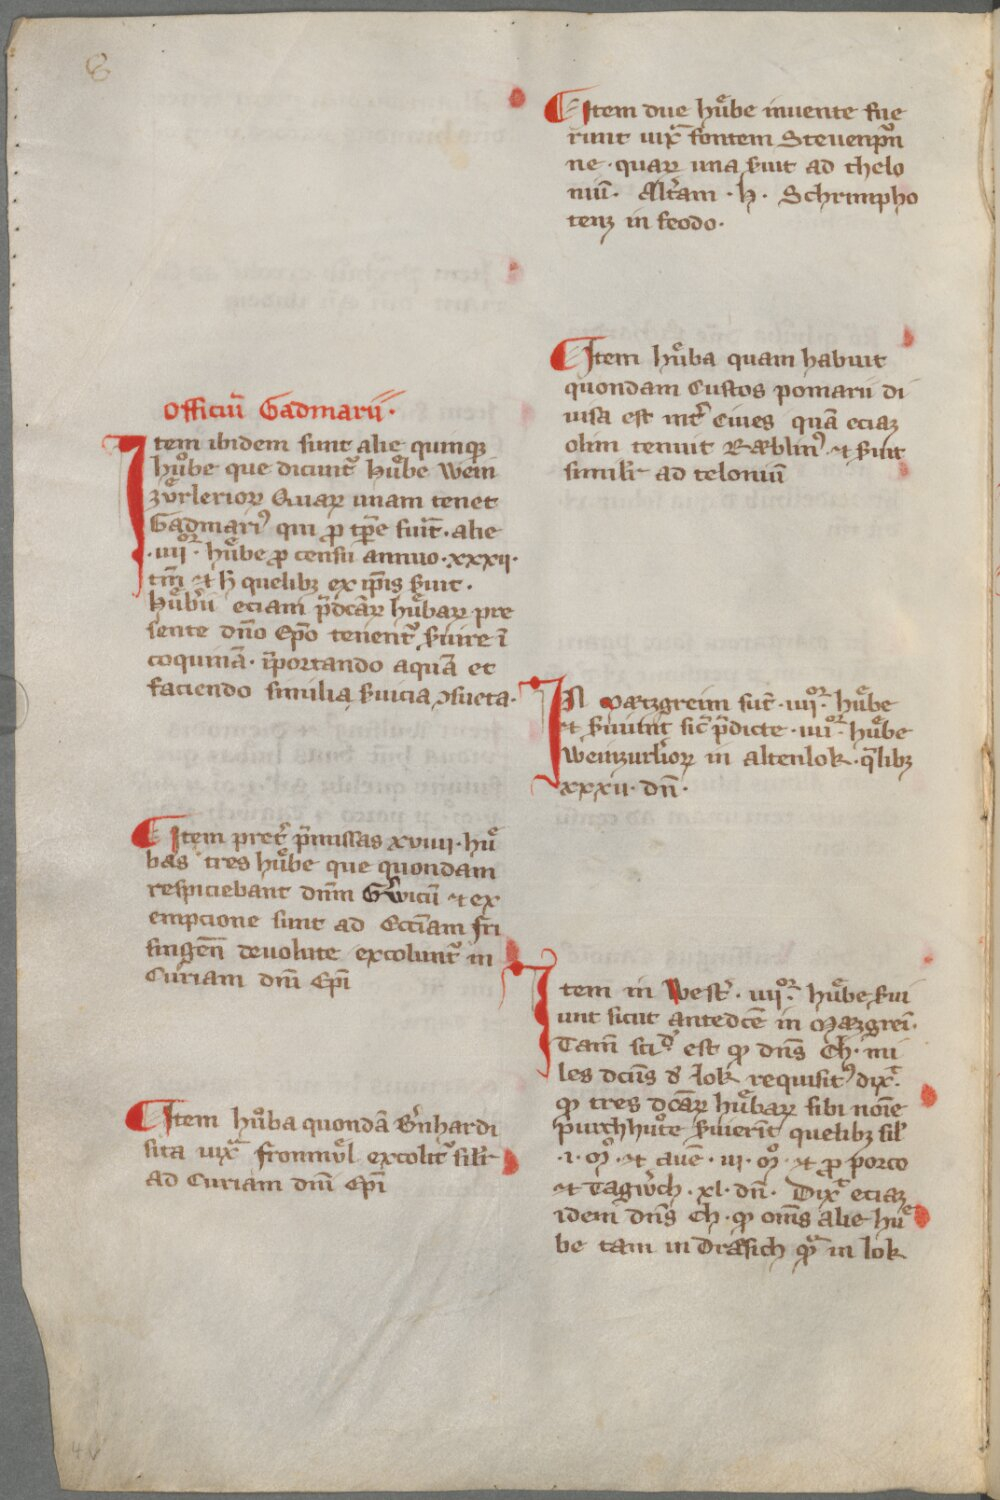 8
Officiū Gadmarii.
Item ibidem sunt alie quinqꝫ
hůbe que dicunt᷑ hůbe Wein
zůrlerioꝝ Quaꝝ unam tenet
Gadmariꝰ qui ꝓ tp̄e fuīt. alie
.iiij.oꝛ hůbe ꝓ censu annuo .xxxij.
et quelibꝫ ex ip̄is ẜuit.
eciam p̄dc̄aꝝ hůbaꝝ pre
sente dn̄o Ep̄o tenent᷑ ẜuire ī
coquinā. īportando aquā et
faciendo similia ẜuicia ꝯsueta.
¶ Item pret᷑ p̄missas xviiij. hů
bas tres hůbe que quondam
respiciebant dn̄m Gͤwicū et ex
empcione sunt ad Eccl̄iam fri
singen̄ deuolute excolunt᷑ in
Curiam dn̄i Ep̄i
¶ Item hůba quondā Bn̄hardi
sita iuxͣ fronmůl excolit᷑ sil̄r
ad Curiam dn̄i Ep̄i
¶ Item due hůbe inuente fue
runt iuxͣ fontem Steuenpͮn
ne. quaꝝ una ẜuit ad thelo
niū. Alt̄am .h. Schrimpho
tenꝫ in feodo.
¶ Item hůba quam habuit
quondam Custos pomarii di
uisa est int̄ ciues quā eciaꝫ
olim tenuit Ræblinꝰ et ẜuit
simili᷑ ad teloniū
IN Mætzgreim sūt .iiij.oꝛ hůbe
et ẜuiunt sic̄ p̄dicte .iiij.oꝛ hůbe
Weinzurl̄ioꝝ in altenlok. q̄libꝫ
xxxii. dn̄.
Item in West᷑. iiij.oꝛ hůbe ẜui
unt sicut antedcē in Mæzgrei.
Tam̄ sci est ꝙ dn̄s Ch. mi
les dcūs d̓ lok requisitꝰ dixͭ.
ꝙ tres dc̄aꝝ hůbaꝝ sibi noīe
purchhůte ẜuierīt quelibꝫ sil᷑
.i. Mͦ. et auē .vi. Mͦ. et ꝓ porco
et Tagẘch .xl. dn̄. Dixͭ eciaꝫ
idem dn̄s Ch. ꝙ om̄s alie hů
be tam in Dræsich qͣ in lok